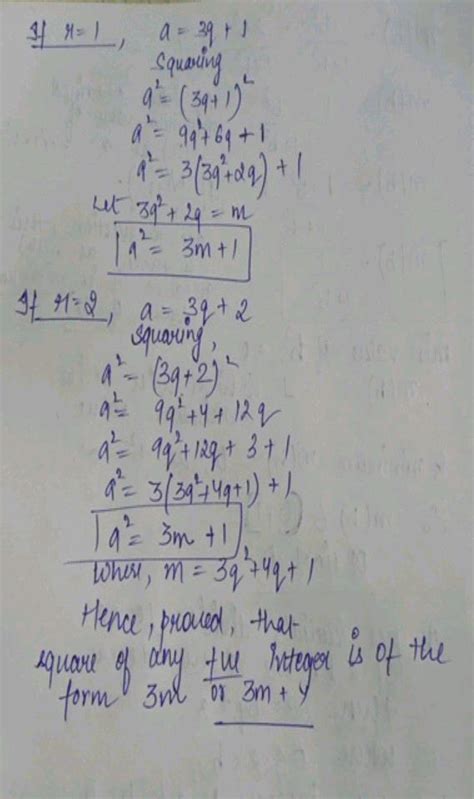 If r=1, a = 3q + 1
Squaring
a² = (3q+1)²
a² = 9q²+6q + 1
a² = 3(3q²+2q) + 1
Let 3q²+2q = m
a² = 3m + 1
If r=2, a = 3q + 2
Squaring,
a² = (3q+2)²
a² = 9q²+4+12q
a² = 9q²+12q + 3 + 1
a² = 3(3q²+4q+1) + 1
a² = 3m + 1
Where, m = 3q²+4q+1
Hence, proved, that
square of any +ve Integer is of the
form 3m or 3m +